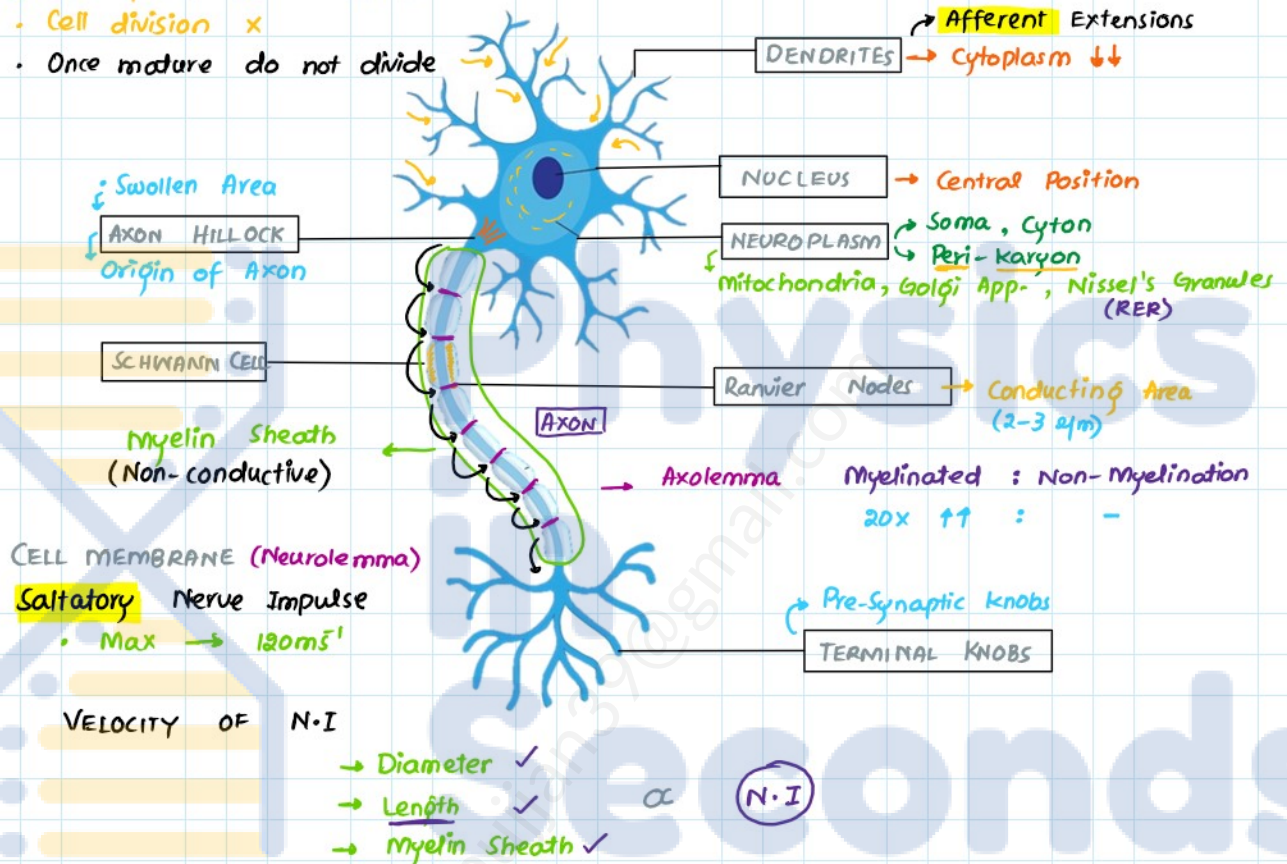 • Cell division x
• Once mature do not divide
Afferent Extensions
DENDRITES → Cytoplasm ↓↓
NUCLEUS → Central Position
Swollen Area
AXON HILLOCK
Origin of Axon
NEUROPLASM
Soma, Cyton
Peri-karyon
Mitochondria, Golgi App., Nissel's Granules
(RER)
SCHWANN CELL
Ranvier Nodes → Conducting Area
(2-3 e/m)
AXON
Myelin Sheath
(Non-conductive)
→ Axolemma
Myelinated : Non-Myelination
20x ↑↑ : -
CELL MEMBRANE (Neurolemma)
Saltatory Nerve Impulse
• Max → 120ms⁻¹
Pre-Synaptic knobs
TERMINAL KNOBS
VELOCITY OF N.I
→ Diameter ✓
→ Length ✓ ∝ N.I
→ Myelin Sheath ✓
Physics
in
Seconds